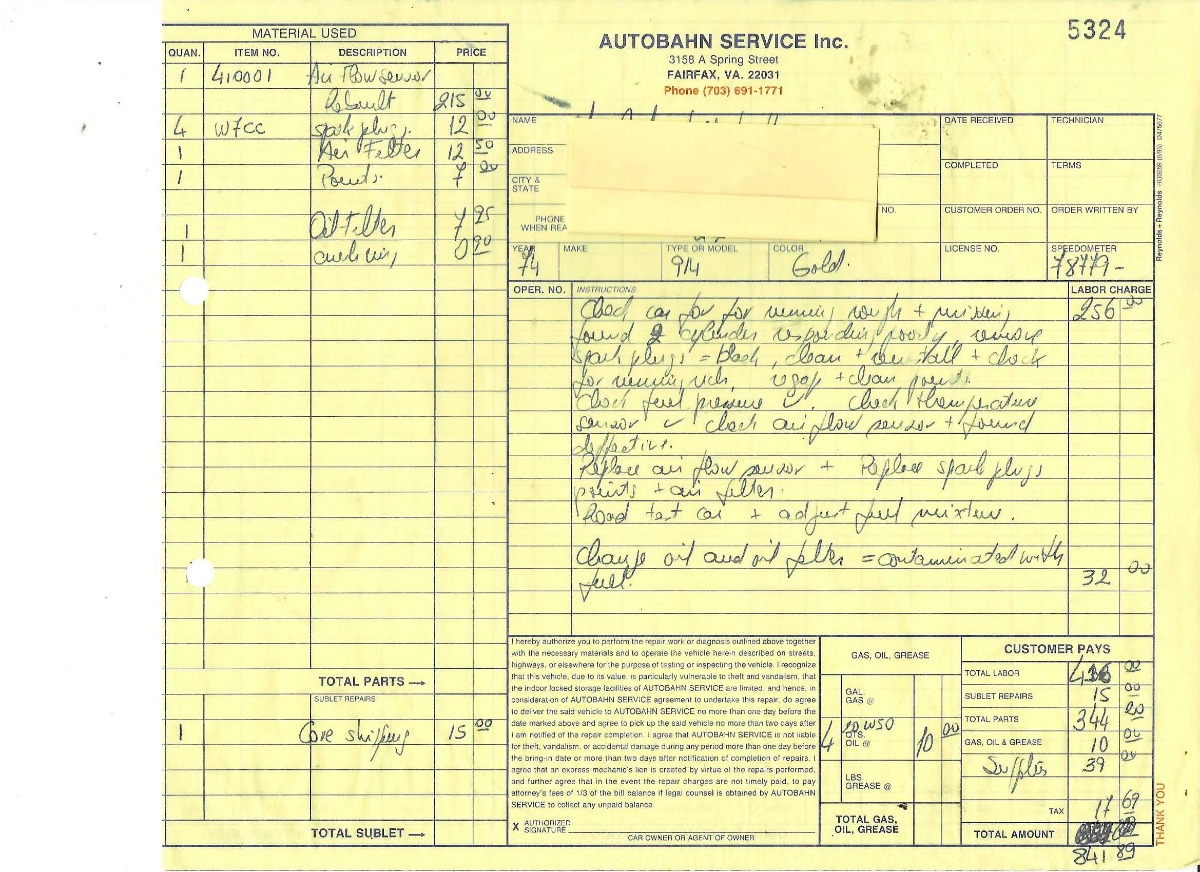 5324
AUTOBAHN SERVICE Inc.
3158 A Spring Street
FAIRFAX, VA. 22031
Phone (703) 691-1771
MATERIAL USED
QUAN. ITEM NO. DESCRIPTION PRICE
1 410001 Air flow sensor
Rebuilt 215 00
4 W7CC spark plugs. 12 00
1 Air Filter 12 50
1 Points. 7 00
1 Oil Filter 7 95
1 0 90
TOTAL PARTS
SUBLET REPAIRS
1 Core shipping 15 00
TOTAL SUBLET
NAME
ADDRESS
CITY &
STATE
PHONE
WHEN REA
NO.
DATE RECEIVED TECHNICIAN
COMPLETED TERMS
CUSTOMER ORDER NO. ORDER WRITTEN BY
YEAR MAKE TYPE OR MODEL COLOR LICENSE NO. SPEEDOMETER
74 914 Gold. 78779-
OPER. NO. INSTRUCTIONS LABOR CHARGE
Check car for for running rough + missing 256 00
found 2 cylinder responding poorly, remove
spark plugs = black, clean + reinstall + check
for running rich, regap + clean points.
Check fuel pressure ✓. Check themperature
sensor ✓ check air flow sensor + found
deffective.
Replace air flow sensor + Replace spark plugs
points + air filter.
Road test car + adjust fuel mixture.
Change oil and oil filter = contaminated with
fuel. 32 00
I hereby authorize you to perform the repair work or diagnosis outlined above together
with the necessary materials and to operate the vehicle herein described on streets,
highways, or elsewhere for the purpose of testing or inspecting the vehicle. I recognize
that this vehicle, due to its value, is particularly vulnerable to theft and vandalism, that
the indoor locked storage facilities of AUTOBAHN SERVICE are limited, and hence, in
consideration of AUTOBAHN SERVICE agreement to undertake this repair, do agree
to deliver the said vehicle to AUTOBAHN SERVICE no more than one day before the
date marked above and agree to pick up the said vehicle no more than two days after
I am notified of the repair completion. I agree that AUTOBAHN SERVICE is not liable
for theft, vandalism, or accidental damage during any period more than one day before
the bring-in date or more than two days after notification of completion of repairs. I
agree that an express mechanic's lien is created by virtue of the repairs performed,
and further agree that in the event the repair charges are not timely paid, to pay
attorney's fees of 1/3 of the bill balance if legal counsel is obtained by AUTOBAHN
SERVICE to collect any unpaid balance.
X AUTHORIZED
SIGNATURE
CAR OWNER OR AGENT OF OWNER
GAS, OIL, GREASE
GAL.
GAS @
4 20W50
QTS.
OIL @ 10 00
LBS.
GREASE @
TOTAL GAS,
OIL, GREASE
CUSTOMER PAYS
TOTAL LABOR 00
SUBLET REPAIRS 15 00
TOTAL PARTS 344
GAS, OIL & GREASE 10 00
Supplies 39 00
TAX 17 69
TOTAL AMOUNT
841 89
THANK YOU